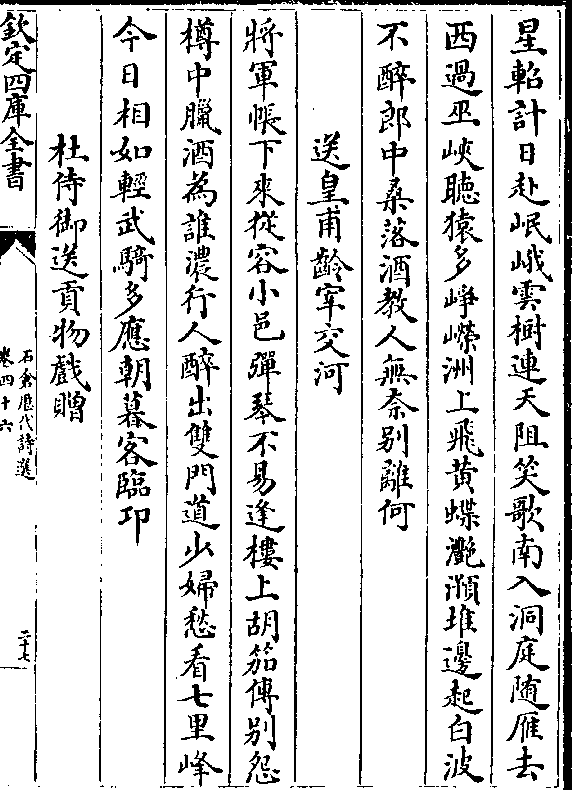 星軺計日赴岷峨雲樹連天阻笑歌南入洞庭随雁去
西過巫峽聽猿多崢嶸洲上飛黄蝶灔澦堆邊起白波
不醉郎中桑落酒教人無奈别離何
送皇甫齡宰交河
將軍帳下來從容小邑彈琴不易逢樓上胡笳傳别怨
樽中臘酒為誰濃行人醉出雙門道少婦愁看七里峰
今日相如輕武騎多應朝暮客臨卭
杜侍御送貢物戲贈
欽定四庫全書
石倉歴代詩選
卷四十六
二十七